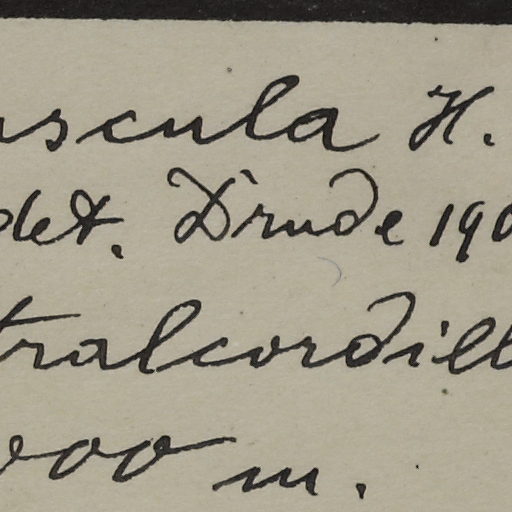 uscula H.
det. Drude 190
tralcordill
000 m.